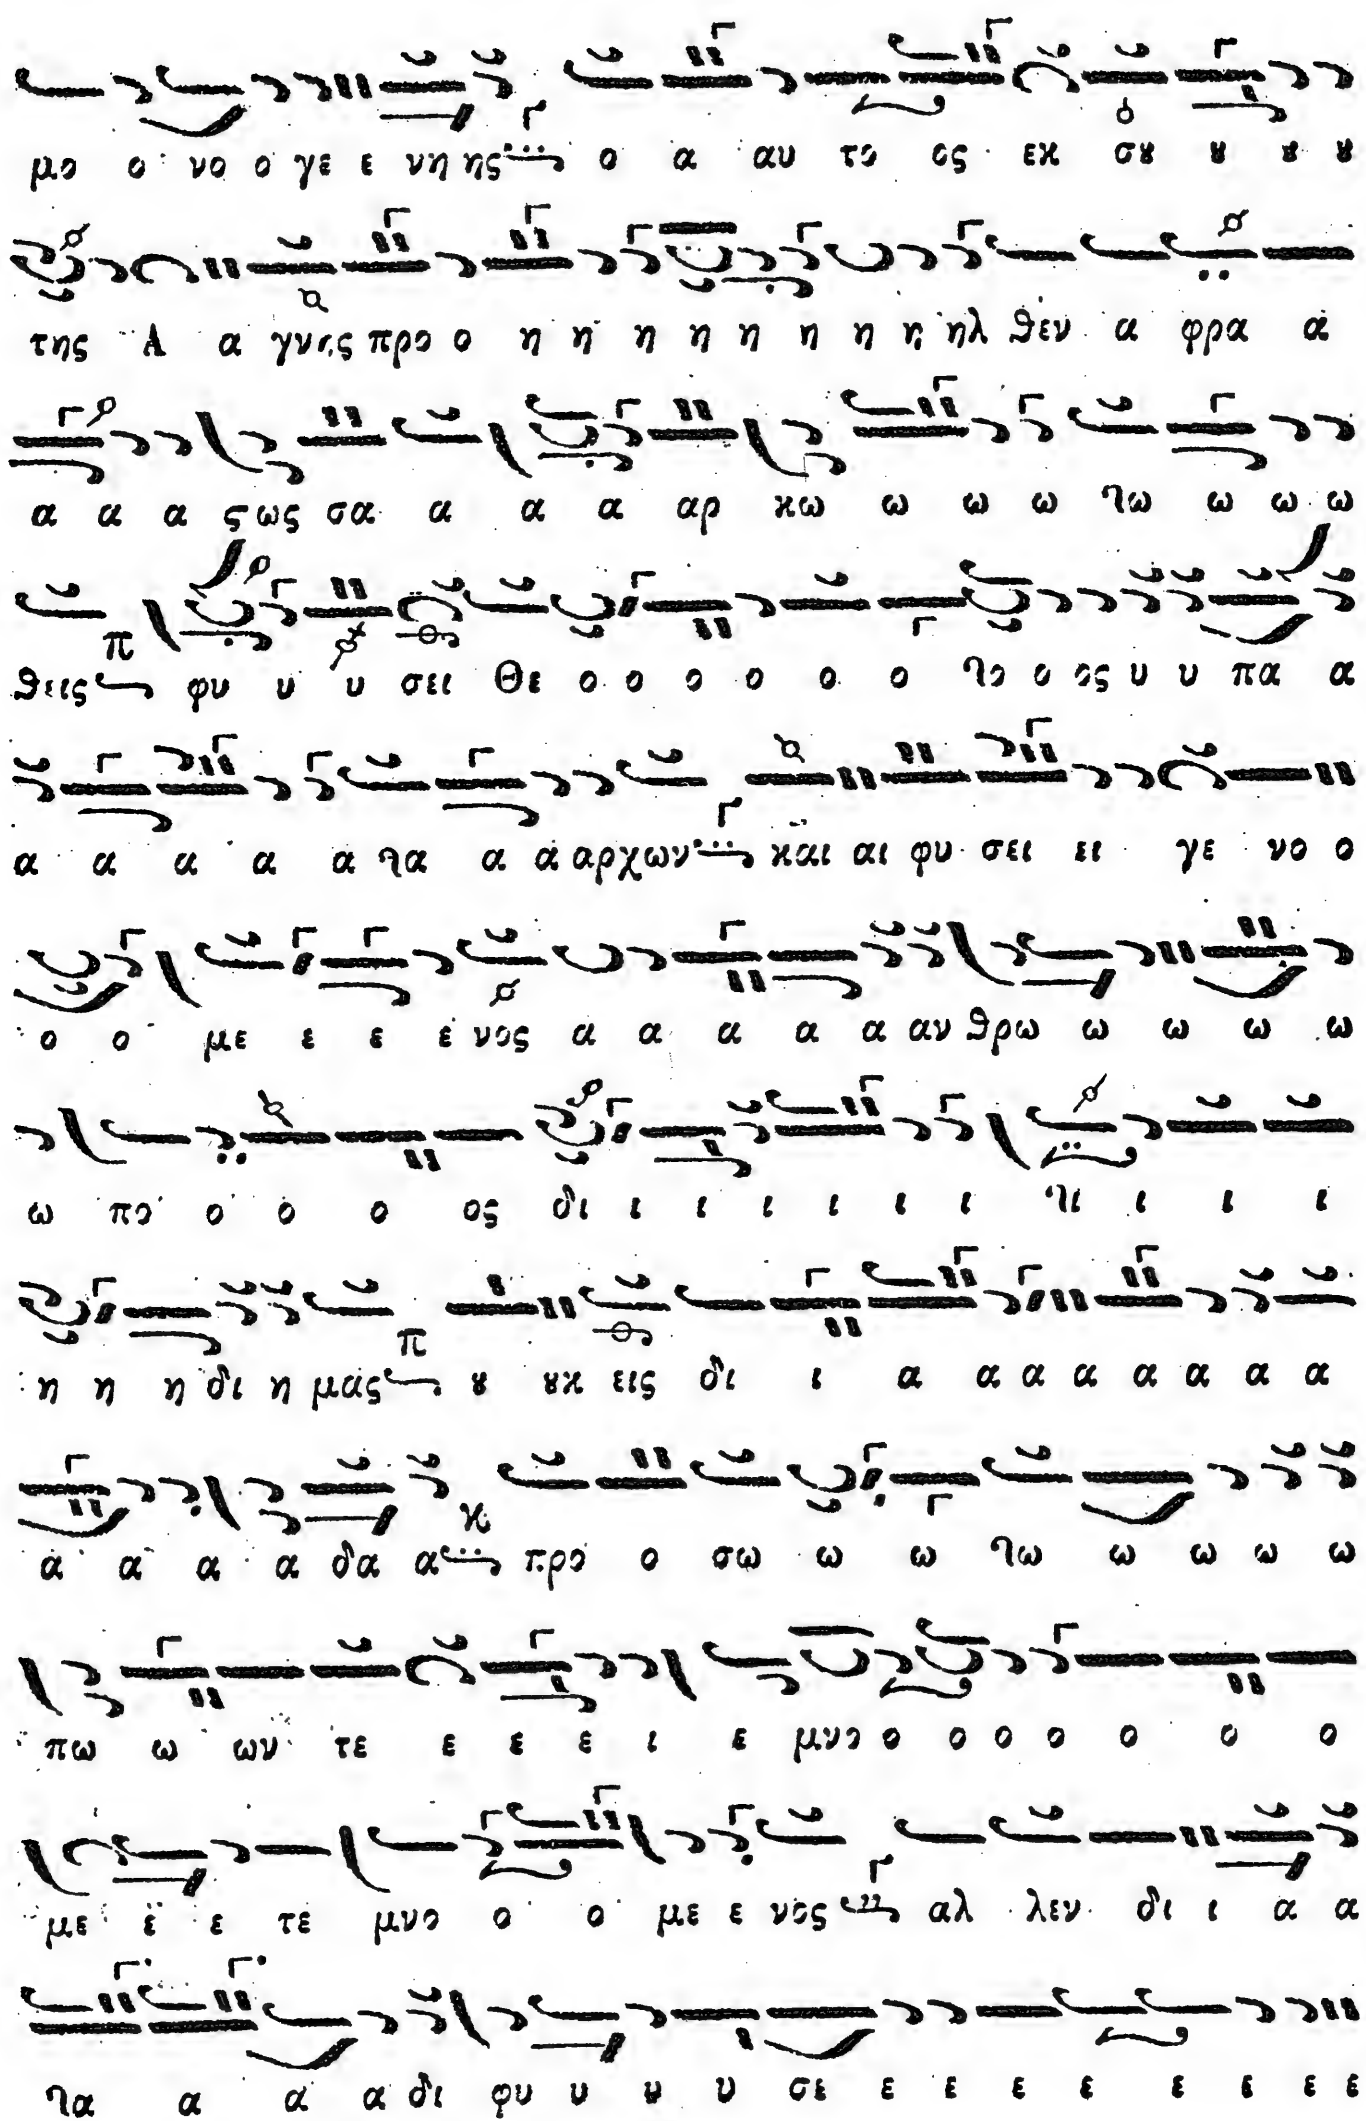 μο ο νο ο γε ε νη ης ο α αυ το ος εκ σȣ ȣ ȣ ȣ
της Α α γνης προ ο η η η η η η η η ηλ θεν α φρα α
α α α ςως σα α α α αρ κω ω ω ω τω ω ω ω
θεις π φυ υ υ σει Θε ο ο ο ο ο ο το ο ος υ υ πα α
α α α α α τα α α αρχων και αι φυ σει ει γε νο ο
ο ο με ε ε ε νος α α α α α αν θρω ω ω ω ω
ω πο ο ο ο ος δι ι ι ι ι ι ι τι ι ι ι
η η η δι η μας π ȣ ȣκ εις δι ι α α α α α α α α
α α α α δα α κ προ ο σω ω ω τω ω ω ω ω
πω ω ων τε ε ε ε ι ε μνο ο ο ο ο ο ο ο
με ε ε τε μνο ο ο με ε νος αλ λεν δι ι α α
τα α α α δι φυ υ υ υ σε ε ε ε ε ε ε ε ε